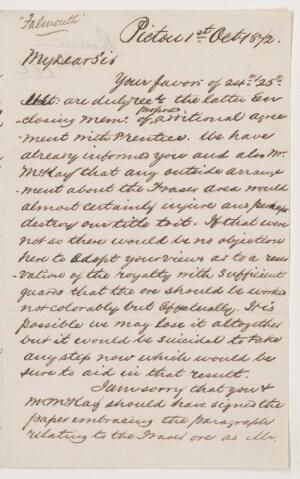 "Falmouth"
Pictou 1st Oct 1872.
My dear Sir
Your favor of 24th & 25th
ult. are duly recd the latter en
closing mem. of proposed additional agree
ment with Prentice. We have
already informed you and also Mr.
McKay that any outside arrange
ment about the Fraser area would
almost certainly injure and perhaps
destroy our title to it. If that were
not so there would be no objection
here to adopt your views as to a reser
vation of the royalty with sufficient
guards that the ore should be worked
not colorably but effectually. It is
possible we may lose it altogether
but it would be suicidal to take
any step now which would be
sure to aid in that result.
I am sorry that you &
Mr McKay should have signed the
paper embracing the paragraph
relating to the Fraser ore as Mr.